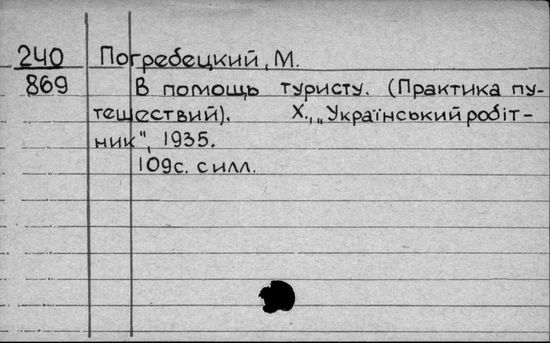 240 Погребецкий, М.
869 В помощь туристу. (Практика пу-
тешествий). Х., „Український робіт-
ник", 1935.
109с. с илл.